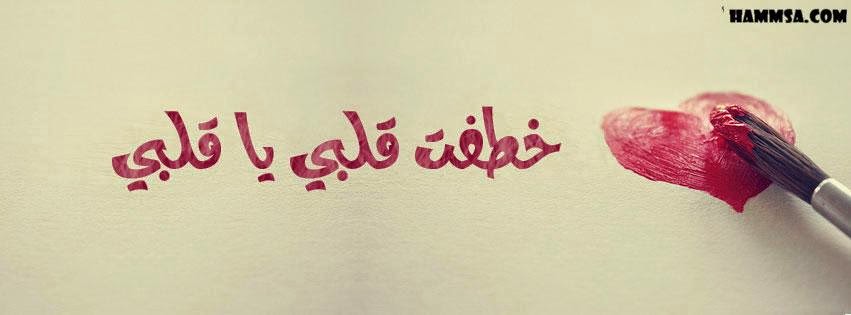 HAMMSA.COM
خطفت قلبي يا قلبي